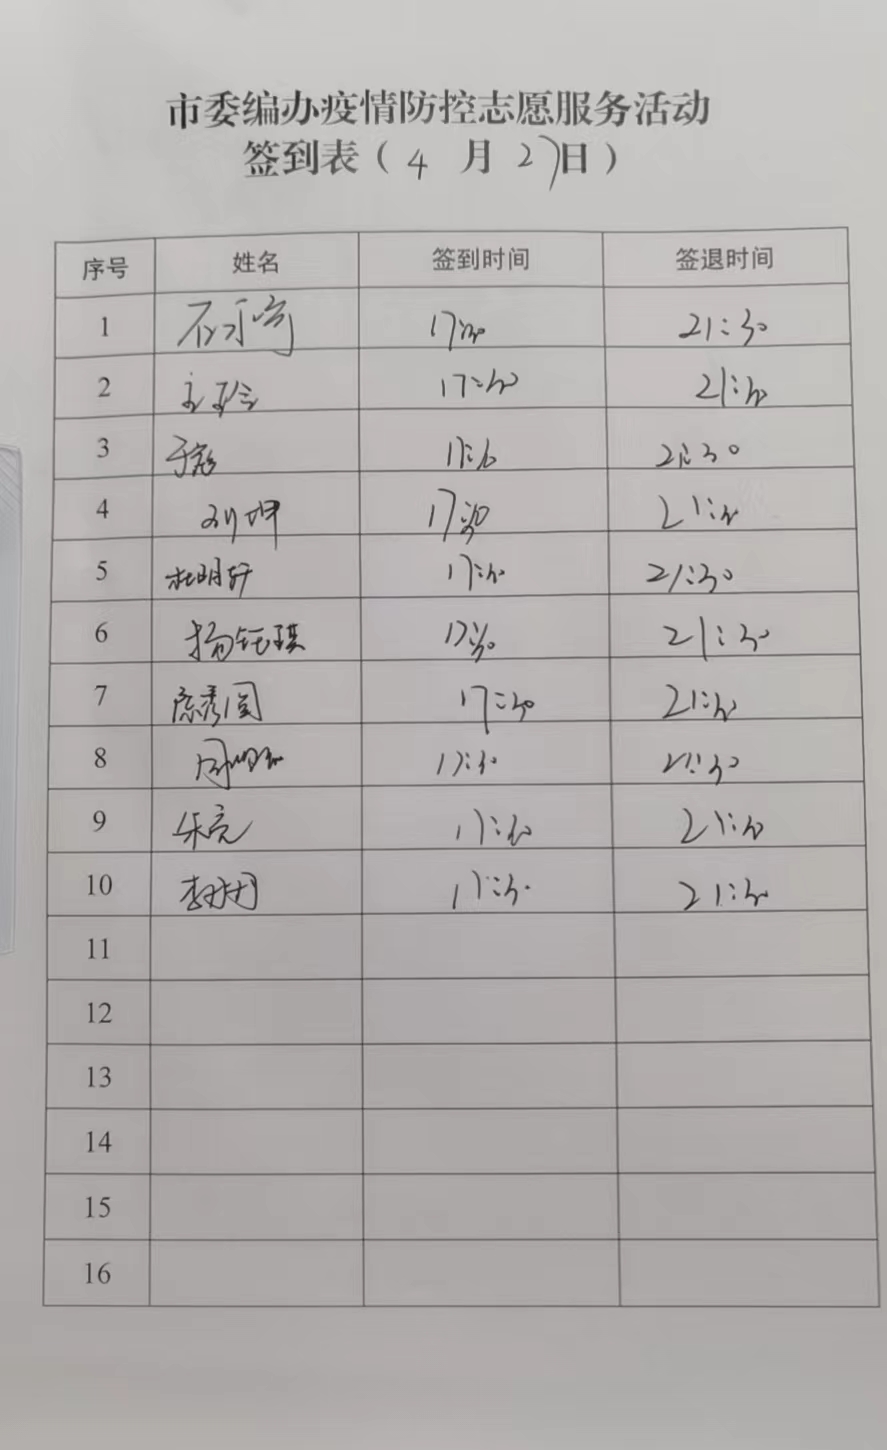 市委编办疫情防控志愿服务活动
签到表（4月27日）
序号 姓名 签到时间 签退时间
1 17:30 21:30
2 17:30 21:30
3 于彪 17:30 21:30
4 刘坤 17:30 21:30
5 杜明轩 17:30 21:30
6 杨钰琪 17:30 21:30
7 陈秀国 17:30 21:30
8 17:30 21:30
9 朱亮 17:30 21:30
10 17:30 21:30
11
12
13
14
15
16